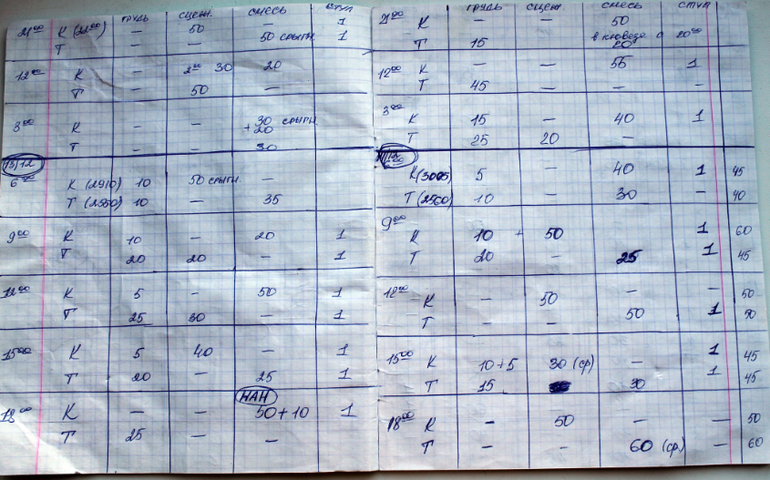 грудь сцеж. смесь стул
21 00 К (22 00) — 50 — 1
Т — — 50 срыгн 1
12 00 К — 30 20
Т — 50 —
3 00 К — — 30 срыгн
+20
Т — — 30
13/12
6 00 К (2910) 10 50 срыгн —
Т (2550) 10 — 35
9 00 К 10 — 20 1
Т 20 20 — 1
12 00 К 5 — 50 1
Т 25 30 — 1
15 00 К 5 40 — 1
Т 20 — 25 1
НАН
18 00 К — — 50+10 1
Т 25 — —
грудь сцеж. смесь стул
21 00 К — — 50
Т 15 в 20 00
20
12 00 К — — 55 1
Т 45 — — —
3 00 К 15 — 40 1
Т 25 20 —
К (3005) 5 — 40 1 45
Т (2560) 10 — 30 — 40
9 00 К 10 + 50 1 60
Т 20 — 25 1 45
12 00 К — 50 — — 50
Т — — 50 1 50
15 00 К 10+5 30 (ср) — 1 45
Т 15 30 1 45
18 00 К — 50 — — 50
Т — — 60 (ср) — 60